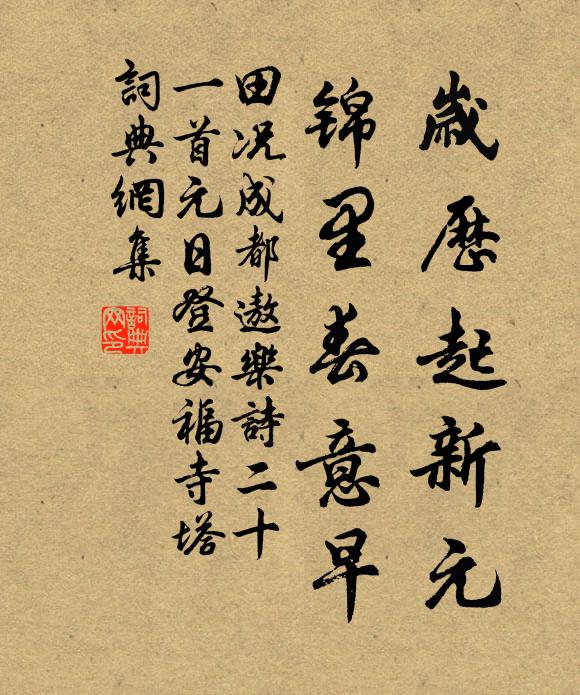 歲歷起新元
錦里春意早
田况成都遨樂詩二十
一首元日登安福寺塔
詞典網集
詞典網印